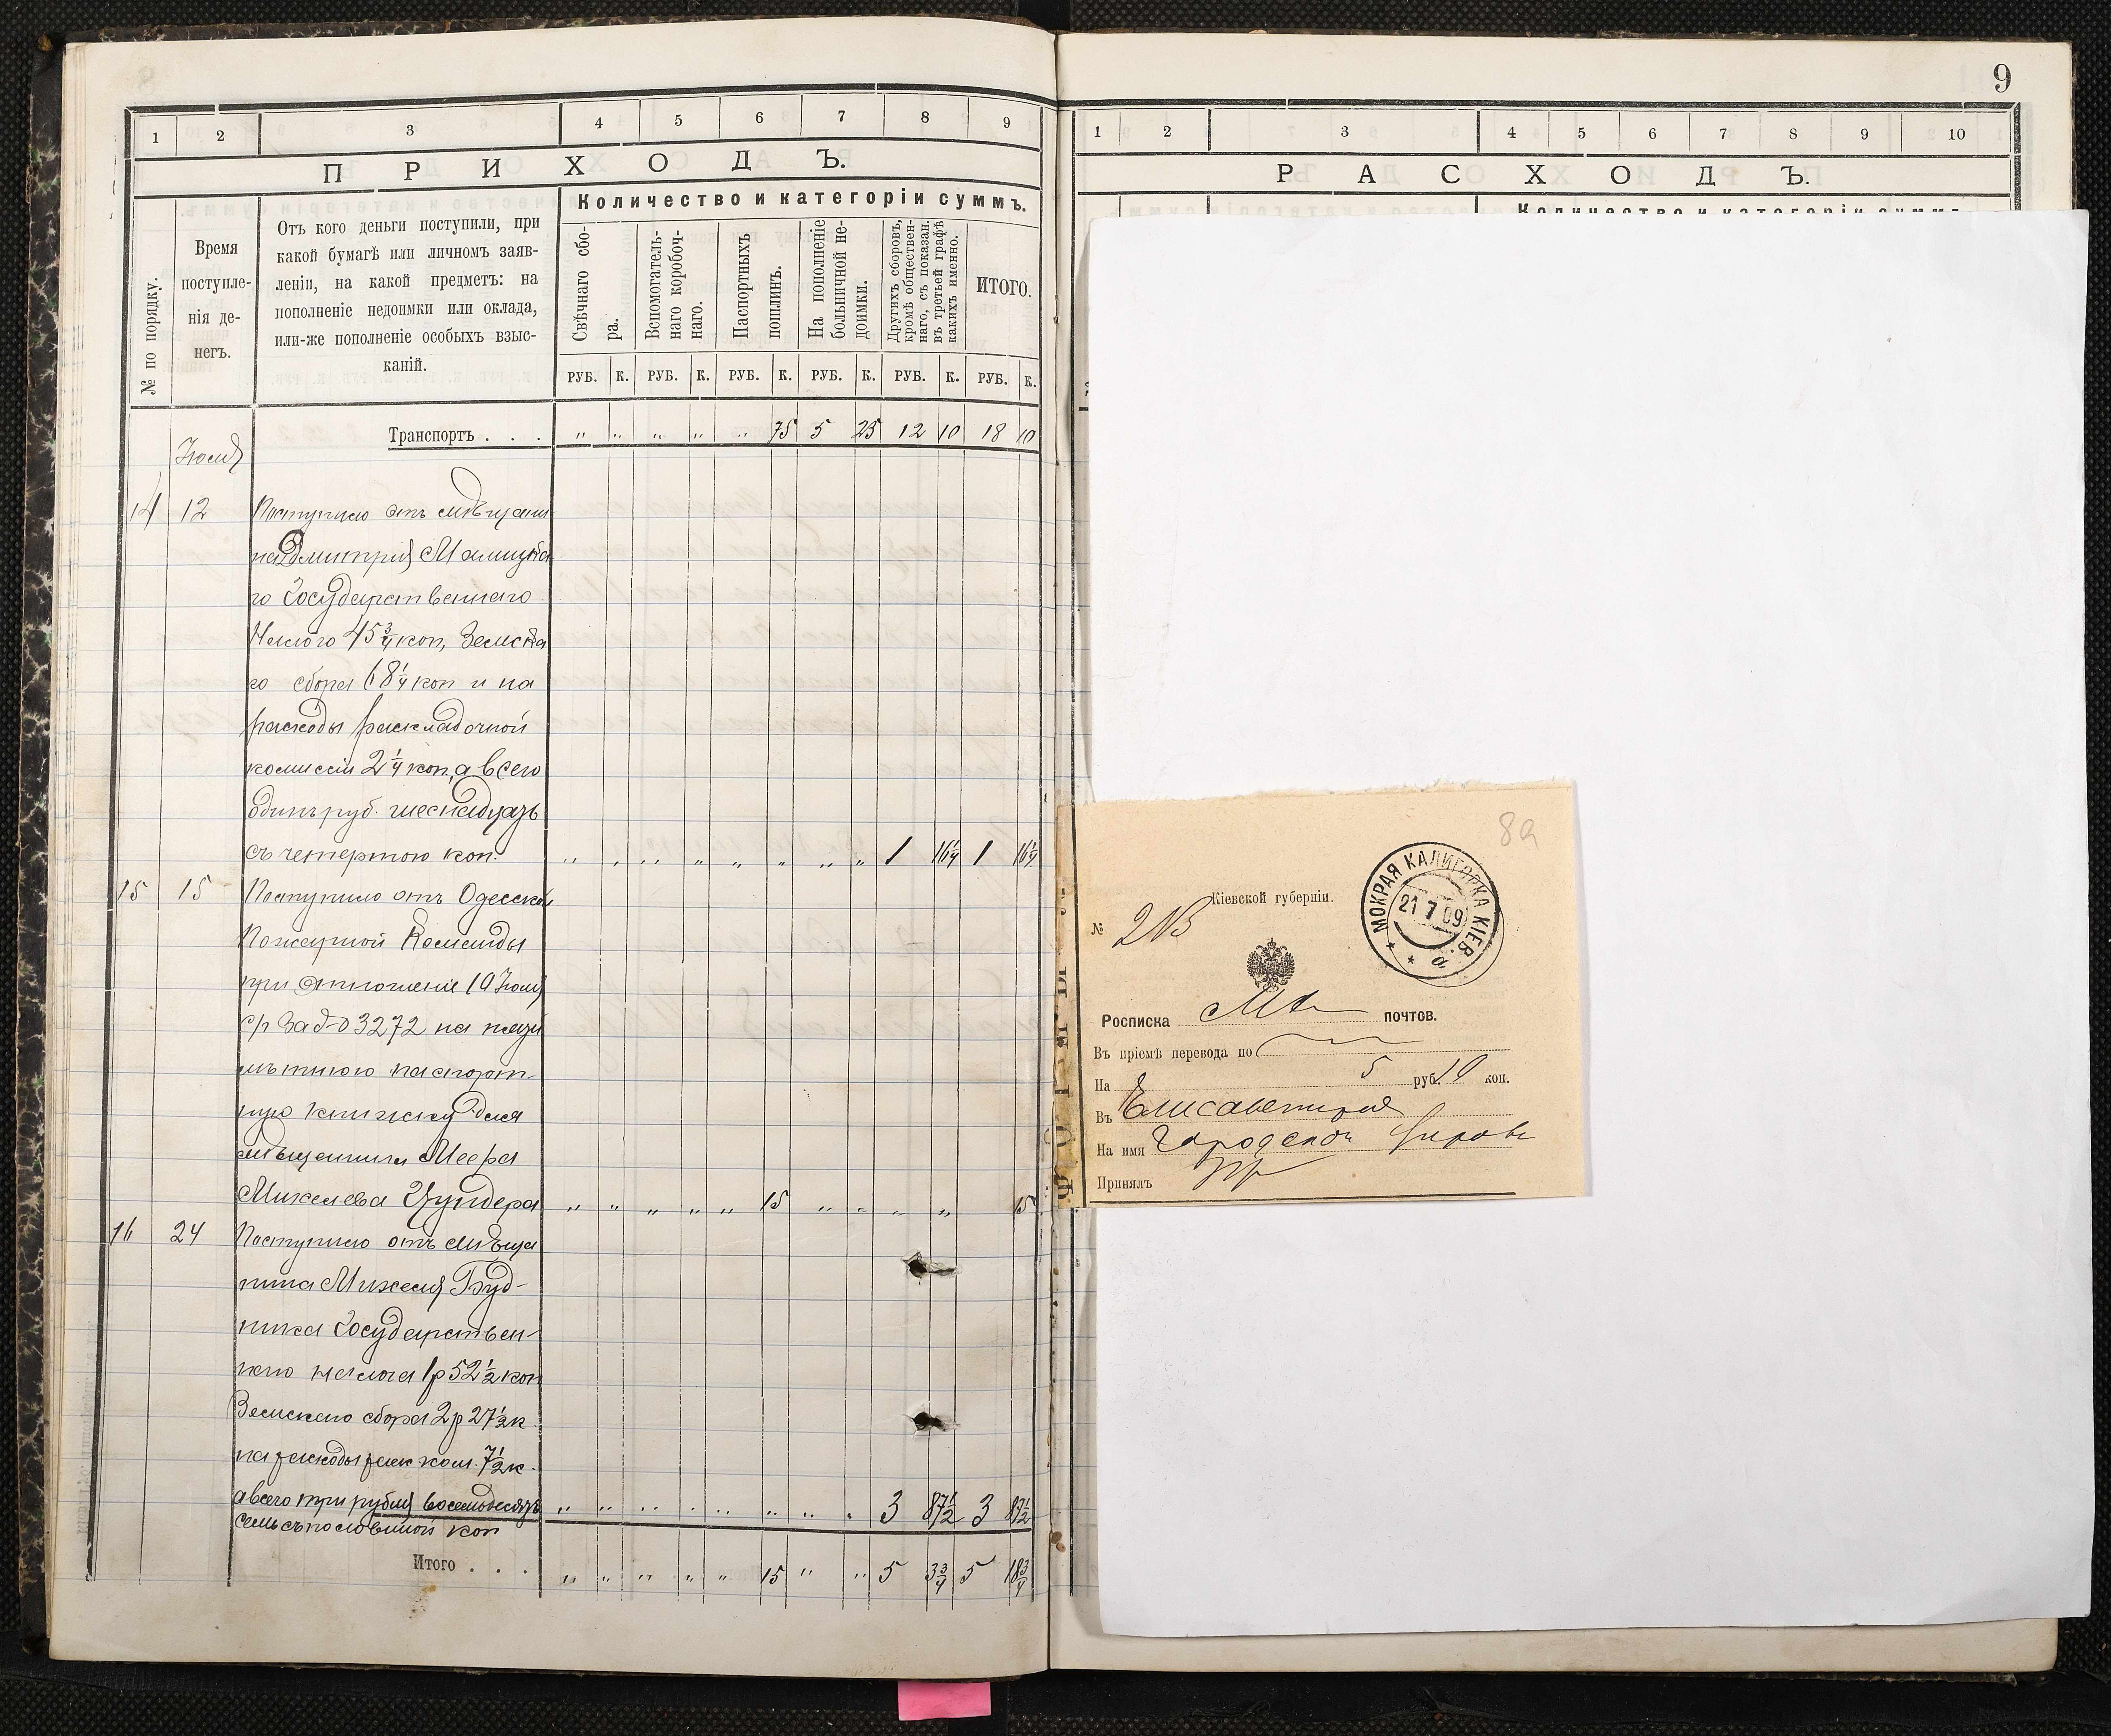 1 2 3 4 5 6 7 8 9
ПРИХОДЪ.
№ по порядку.
Время поступле-
нія де-
негъ.
Отъ кого деньги поступили, при
какой бумагѣ или личномъ заяв-
леніи, на какой предметъ: на
пополненіе недоимки или оклада,
или-же пополненіе особыхъ взыс-
каній.
Количество и категоріи суммъ.
Свѣчнаго сбо-
ра.
Вспомогатель-
наго коробоч-
наго.
Паспортныхъ
пошлинъ.
На пополненіе
больничной не-
доимки.
Другихъ сборовъ,
кромѣ обществен-
наго, съ показан.
въ третьей графѣ
какихъ именно.
ИТОГО.
РУБ. К. РУБ. К. РУБ. К. РУБ. К. РУБ. К. РУБ. К.
Транспортъ . . . " " " " " 75 5 25 12 10 18 10
Іюля
14 12 Поступило отъ мѣщани
на Дмитрія
го Государственнаго
Налога 45 3/4 коп, Земска
го сбора 68 1/4 коп и на
расходы раскладочной
комиссіи 2 1/4 коп, а всего
одинъ руб. шеснадцать
съ четвертою коп. " " " " " " " " 1 16 1/4 1 16 1/4
15 15 Поступило отъ Одесской
Пожарной Команды
при отношеніи 10 Іюля
с/г за № 3272 на
паспорт-
ную книжку для
мѣщанина Меера
Михелева Цундера " " " " " 15 " " " " 15
16 24 Поступило отъ мѣща
нина Михеля Буд-
ника Государствен-
наго налога 1р 52 1/2 коп
Земскаго сбора 2р 27 1/2 к
на расходы раск ком. 7 1/2 к.
а всего три рубля восемьдесятъ " " " " " " " " 3 87 1/2 3 87 1/2
семь съ половиной коп
Итого . . . " " " " " 15 " " 5 3 3/4 5 18 3/4
9
1 2 3 4 5 6 7 8 9 10
РАСХОДЪ.
Количество и категоріи суммъ
8а
Кіевской губерніи.
МОКРАЯ КАЛИГОРКА КІЕВ.
21 7 09
а
№ 213
Росписка почтов.
Въ пріемѣ перевода по
На 5 руб. 10 коп.
Въ Елисаветград
На имя Городской
Принялъ